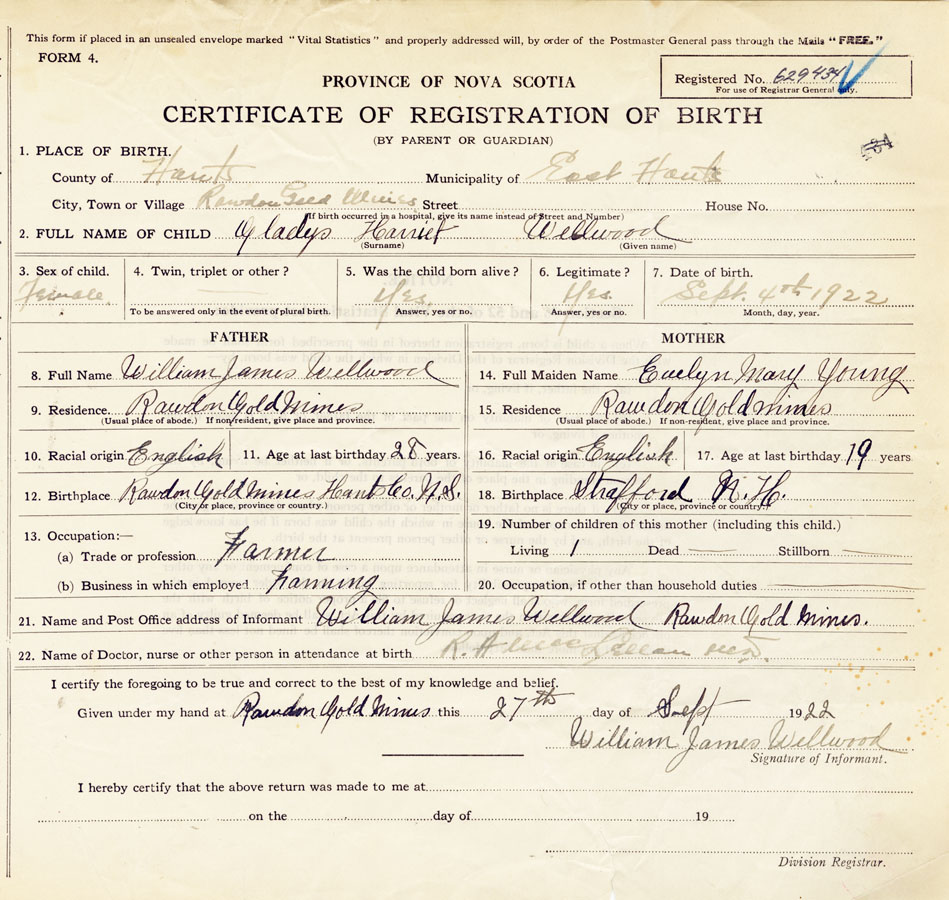 This form if placed in an unsealed envelope marked "Vital Statistics" and properly addressed will, by order of the Postmaster General pass through the Mails "FREE."
FORM 4.
Registered No. 629434
For use of Registrar General only.
PROVINCE OF NOVA SCOTIA
CERTIFICATE OF REGISTRATION OF BIRTH
(BY PARENT OR GUARDIAN)
1. PLACE OF BIRTH.
County of Hants Municipality of East Hants
City, Town or Village Rawdon Gold Mines Street House No.
(If birth occurred in a hospital, give its name instead of Street and Number)
2. FULL NAME OF CHILD Gladys Harriet Wellwood
(Surname) (Given name)
3. Sex of child. 4. Twin, triplet or other? 5. Was the child born alive? 6. Legitimate? 7. Date of birth.
Female. Yes. Yes. Sept. 4th 1922
To be answered only in the event of plural birth. Answer, yes or no. Answer, yes or no. Month, day, year.
FATHER MOTHER
8. Full Name William James Wellwood 14. Full Maiden Name Evelyn Mary Young
9. Residence. Rawdon Gold Mines 15. Residence Rawdon Gold Mines
(Usual place of abode.) If non-resident, give place and province. (Usual place of abode.) If non-resident, give place and province.
10. Racial origin English 11. Age at last birthday 28 years. 16. Racial origin English 17. Age at last birthday 19 years
12. Birthplace Rawdon Gold Mines Hants Co. N.S. 18. Birthplace Strafford N.H.
(City or place, province or country.) (City or place, province or country.)
19. Number of children of this mother (including this child.)
13. Occupation:—
(a) Trade or profession Farmer Living 1 Dead — Stillborn —
(b) Business in which employed Farming 20. Occupation, if other than household duties
21. Name and Post Office address of Informant William James Wellwood Rawdon Gold Mines.
22. Name of Doctor, nurse or other person in attendance at birth
I certify the foregoing to be true and correct to the best of my knowledge and belief.
Given under my hand at Rawdon Gold Mines this 27th day of Sept 1922
William James Wellwood
Signature of Informant.
I hereby certify that the above return was made to me at
on the day of 19
Division Registrar.